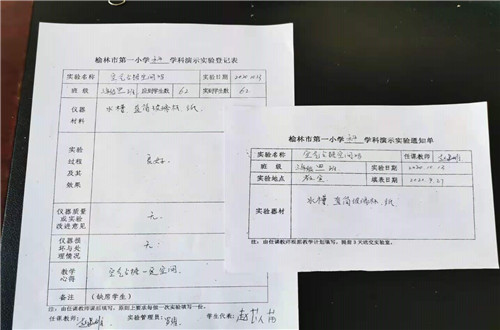 榆林市第一小学科学科演示实验登记表
实验名称 空气占据空间吗 实验日期
班 级 三年级 班 应到学生数 62 实到学生数 62
仪器材料 水槽、直筒玻璃杯、纸
实验过程及其效果 良好
仪器质量或实验改进意见 无
仪器损坏与处理情况 无
教学心得 空气占据一定空间
备注 (缺席学生)
注:由任课教师课后填写,原则上要求每做一次实验填写一份。
任课教师: 实验管理员: 学生代表:
榆林市第一小学科学科演示实验通知单
实验名称 空气占据空间吗 任课教师
班 级 三年级 班 实验日期
实验地点 教室 填表日期 2020.9.27
实验器材 水槽、直筒玻璃杯、纸
注:由任课教师根据教学计划填写,提前3天送交实验室。